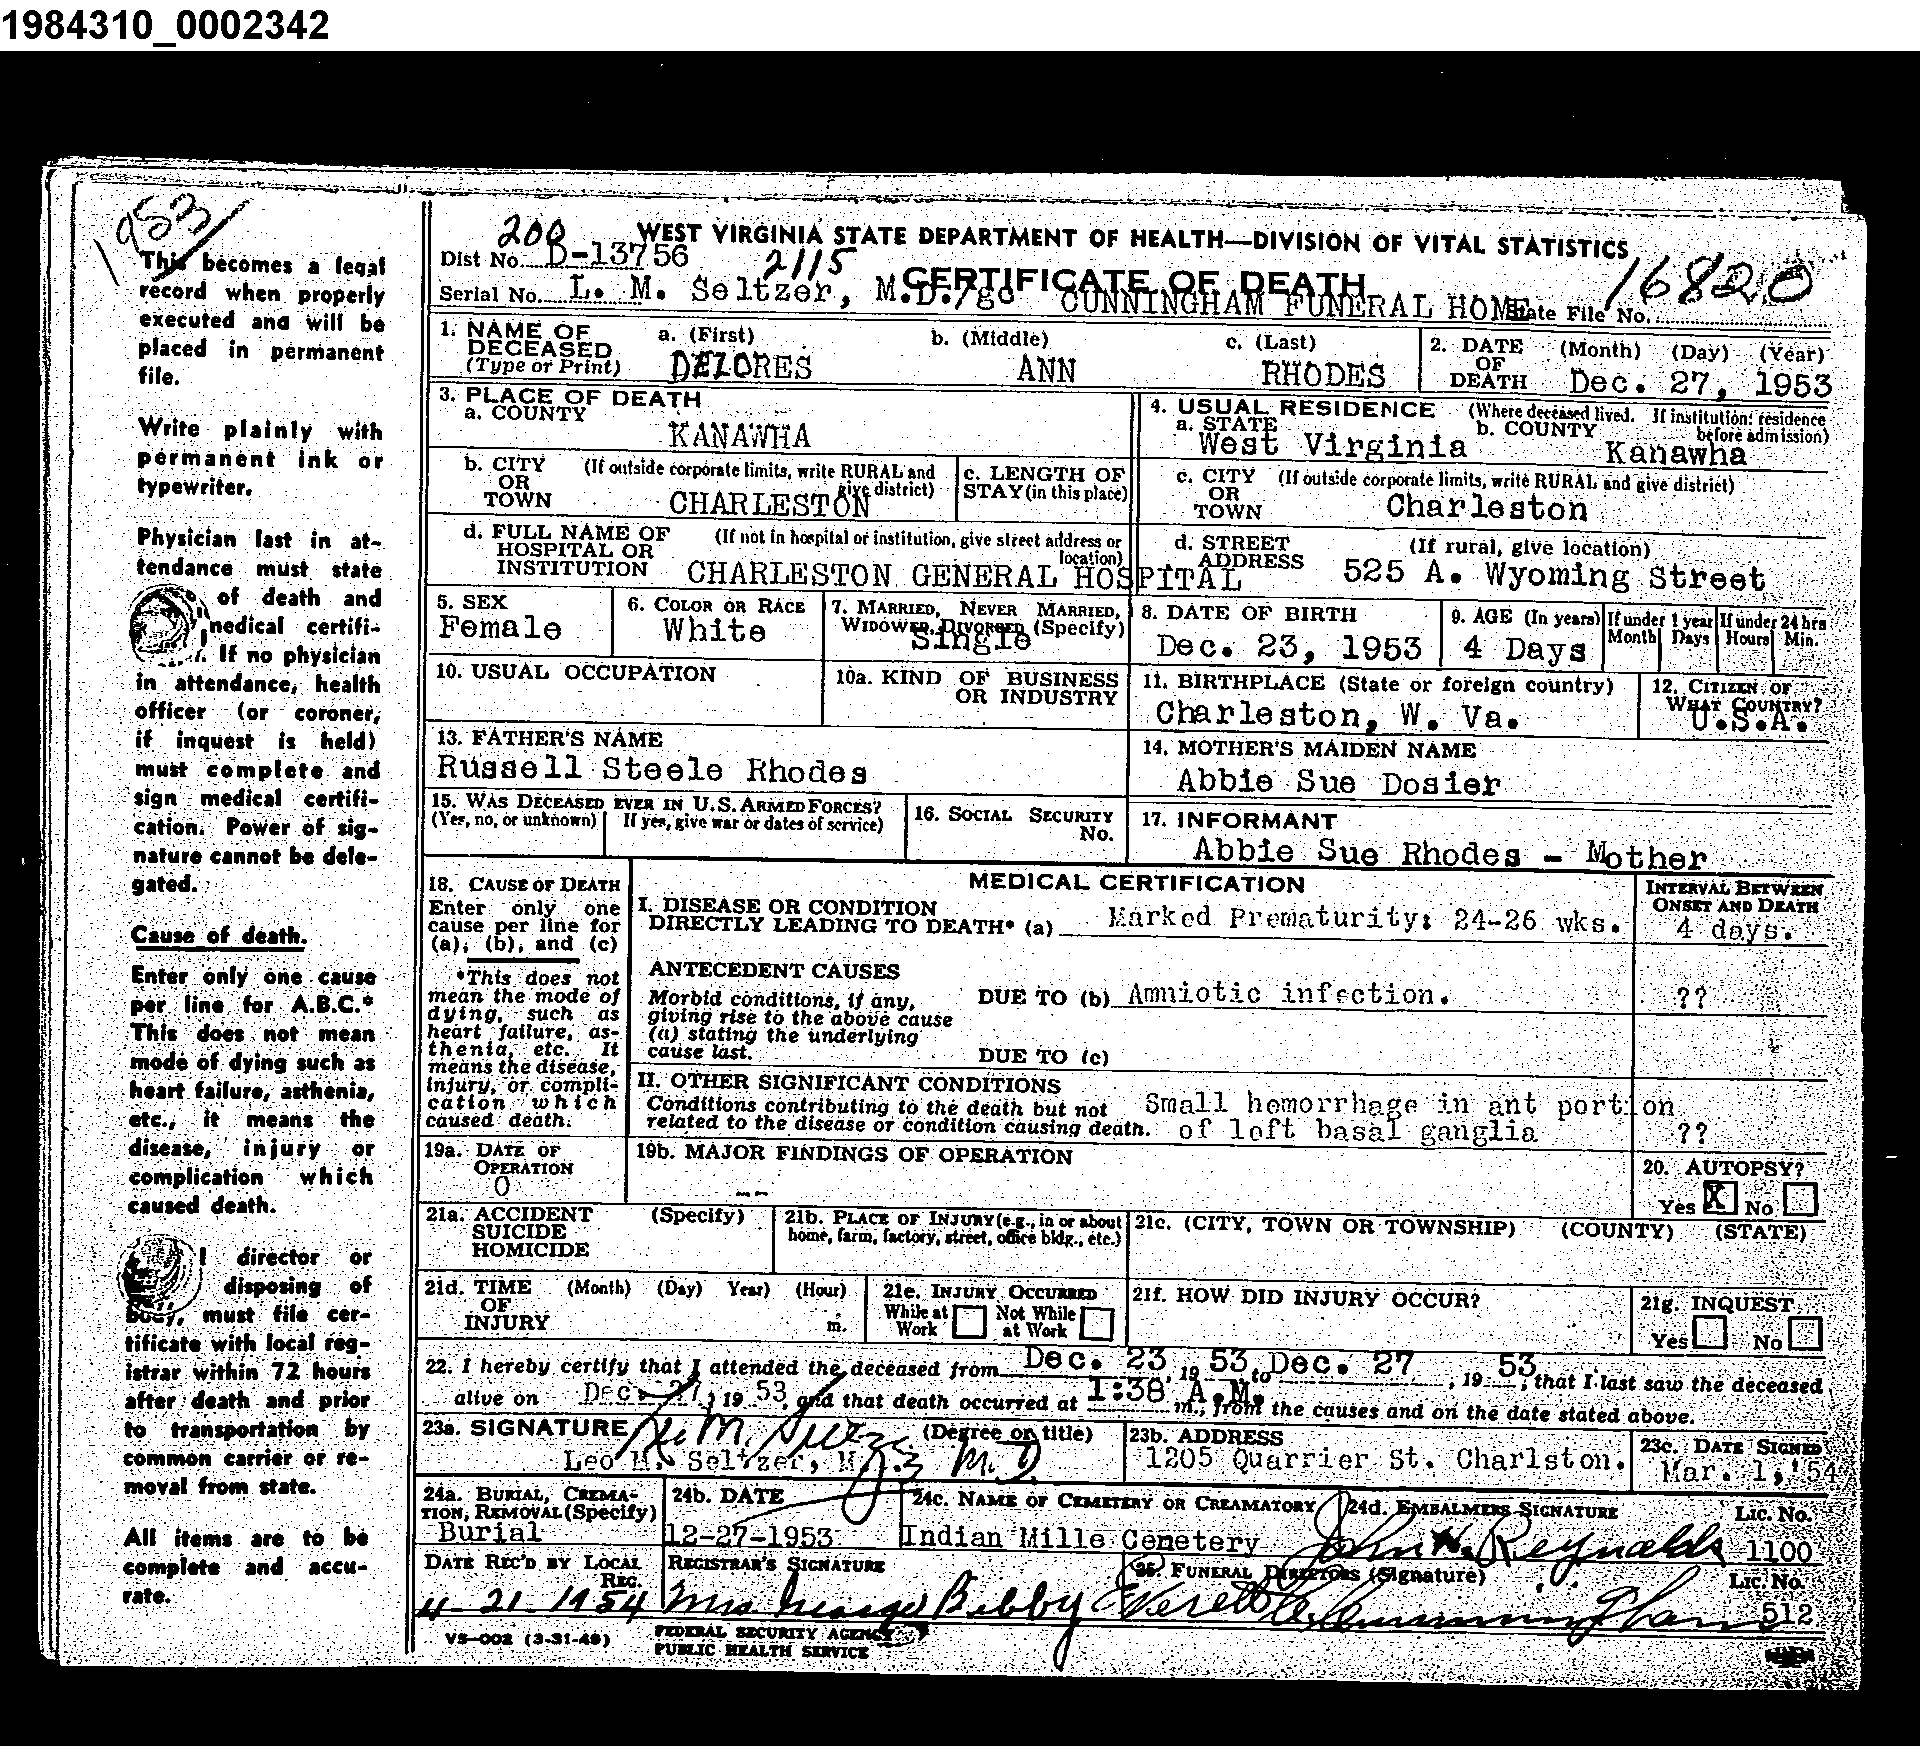 1984310_0002342
1953
This becomes a legal
record when properly
executed and will be
placed in permanent
file.
Write plainly with
permanent ink or
typewriter.
Physician last in at-
tendance must state
of death and
medical certifi-
If no physician
in attendance, health
officer (or coroner,
if inquest is held)
must complete and
sign medical certifi-
cation. Power of sig-
nature cannot be dele-
gated.
Cause of death.
Enter only one cause
per line for A.B.C.*
This does not mean
mode of dying such as
heart failure, asthenia,
etc., it means the
disease, injury or
complication which
caused death.
director or
disposing of
body, must file cer-
tificate with local reg-
istrar within 72 hours
after death and prior
to transportation by
common carrier or re-
moval from state.
All items are to be
complete and accu-
rate.
200 WEST VIRGINIA STATE DEPARTMENT OF HEALTH—DIVISION OF VITAL STATISTICS
Dist No. D-13756 2115 CERTIFICATE OF DEATH 16820
Serial No. L. M. Seltzer, M.D./gc CUNNINGHAM FUNERAL HOME State File No.
1. NAME OF DECEASED (Type or Print) a. (First) b. (Middle) c. (Last) 2. DATE OF DEATH (Month) (Day) (Year)
DELORES ANN RHODES Dec. 27, 1953
3. PLACE OF DEATH 4. USUAL RESIDENCE (Where deceased lived. If institution: residence before admission)
a. COUNTY KANAWHA a. STATE West Virginia b. COUNTY Kanawha
b. CITY OR TOWN (If outside corporate limits, write RURAL and give district) CHARLESTON c. LENGTH OF STAY (in this place) c. CITY OR TOWN (If outside corporate limits, write RURAL and give district) Charleston
d. FULL NAME OF HOSPITAL OR INSTITUTION (If not in hospital or institution, give street address or location) CHARLESTON GENERAL HOSPITAL d. STREET ADDRESS (If rural, give location) 525 A. Wyoming Street
5. SEX Female 6. COLOR OR RACE White 7. MARRIED, NEVER MARRIED, WIDOWED, DIVORCED (Specify) Single 8. DATE OF BIRTH Dec. 23, 1953 9. AGE (In years) 4 Days If under 1 year Month Days If under 24 hrs Hours Min.
10. USUAL OCCUPATION 10a. KIND OF BUSINESS OR INDUSTRY 11. BIRTHPLACE (State or foreign country) Charleston, W. Va. 12. CITIZEN OF WHAT COUNTRY? U.S.A.
13. FATHER'S NAME 14. MOTHER'S MAIDEN NAME
Russell Steele Rhodes Abbie Sue Dosier
15. WAS DECEASED EVER IN U.S. ARMED FORCES? (Yes, no, or unknown) If yes, give war or dates of service) 16. SOCIAL SECURITY No. 17. INFORMANT
Abbie Sue Rhodes - Mother
18. CAUSE OF DEATH
Enter only one
cause per line for
(a), (b), and (c)
*This does not
mean the mode of
dying, such as
heart failure, as-
thenia, etc. It
means the disease,
injury, or compli-
cation which
caused death.
MEDICAL CERTIFICATION INTERVAL BETWEEN ONSET AND DEATH
I. DISEASE OR CONDITION
DIRECTLY LEADING TO DEATH* (a) Marked Prematurity: 24-26 wks. 4 days.
ANTECEDENT CAUSES
Morbid conditions, if any, DUE TO (b) Amniotic infection. ??
giving rise to the above cause
(a) stating the underlying
cause last. DUE TO (c)
II. OTHER SIGNIFICANT CONDITIONS
Conditions contributing to the death but not Small hemorrhage in ant portion
related to the disease or condition causing death. of left basal ganglia ??
19a. DATE OF OPERATION 0 19b. MAJOR FINDINGS OF OPERATION -- 20. AUTOPSY? Yes X No
21a. ACCIDENT SUICIDE HOMICIDE (Specify) 21b. PLACE OF INJURY (e.g., in or about home, farm, factory, street, office bldg., etc.) 21c. (CITY, TOWN OR TOWNSHIP) (COUNTY) (STATE)
21d. TIME OF INJURY (Month) (Day) Year) (Hour) m. 21e. INJURY OCCURRED While at Work Not While at Work 21f. HOW DID INJURY OCCUR? 21g. INQUEST Yes No
22. I hereby certify that I attended the deceased from Dec. 23, 19 53 to Dec. 27, 19 53, that I last saw the deceased
alive on Dec. 27, 19 53 and that death occurred at 1:38 A.M. m., from the causes and on the date stated above.
23a. SIGNATURE (Degree or title) M.D. 23b. ADDRESS 23c. DATE SIGNED
Leo M. Seltzer, M.D. 1205 Quarrier St. Charlston. Mar. 1, '54
24a. BURIAL, CREMATION, REMOVAL (Specify) 24b. DATE 24c. NAME OF CEMETERY OR CREAMATORY 24d. EMBALMERS SIGNATURE Lic. No.
Burial 12-27-1953 Indian Mille Cemetery John H. Reynolds 1100
DATE REC'D BY LOCAL REG. REGISTRAR'S SIGNATURE 25. FUNERAL DIRECTORS (Signature) Lic. No.
4-21-1954 Mrs. George Bibby Everette Cunningham 512
VS-002 (3-31-49) FEDERAL SECURITY AGENCY
PUBLIC HEALTH SERVICE